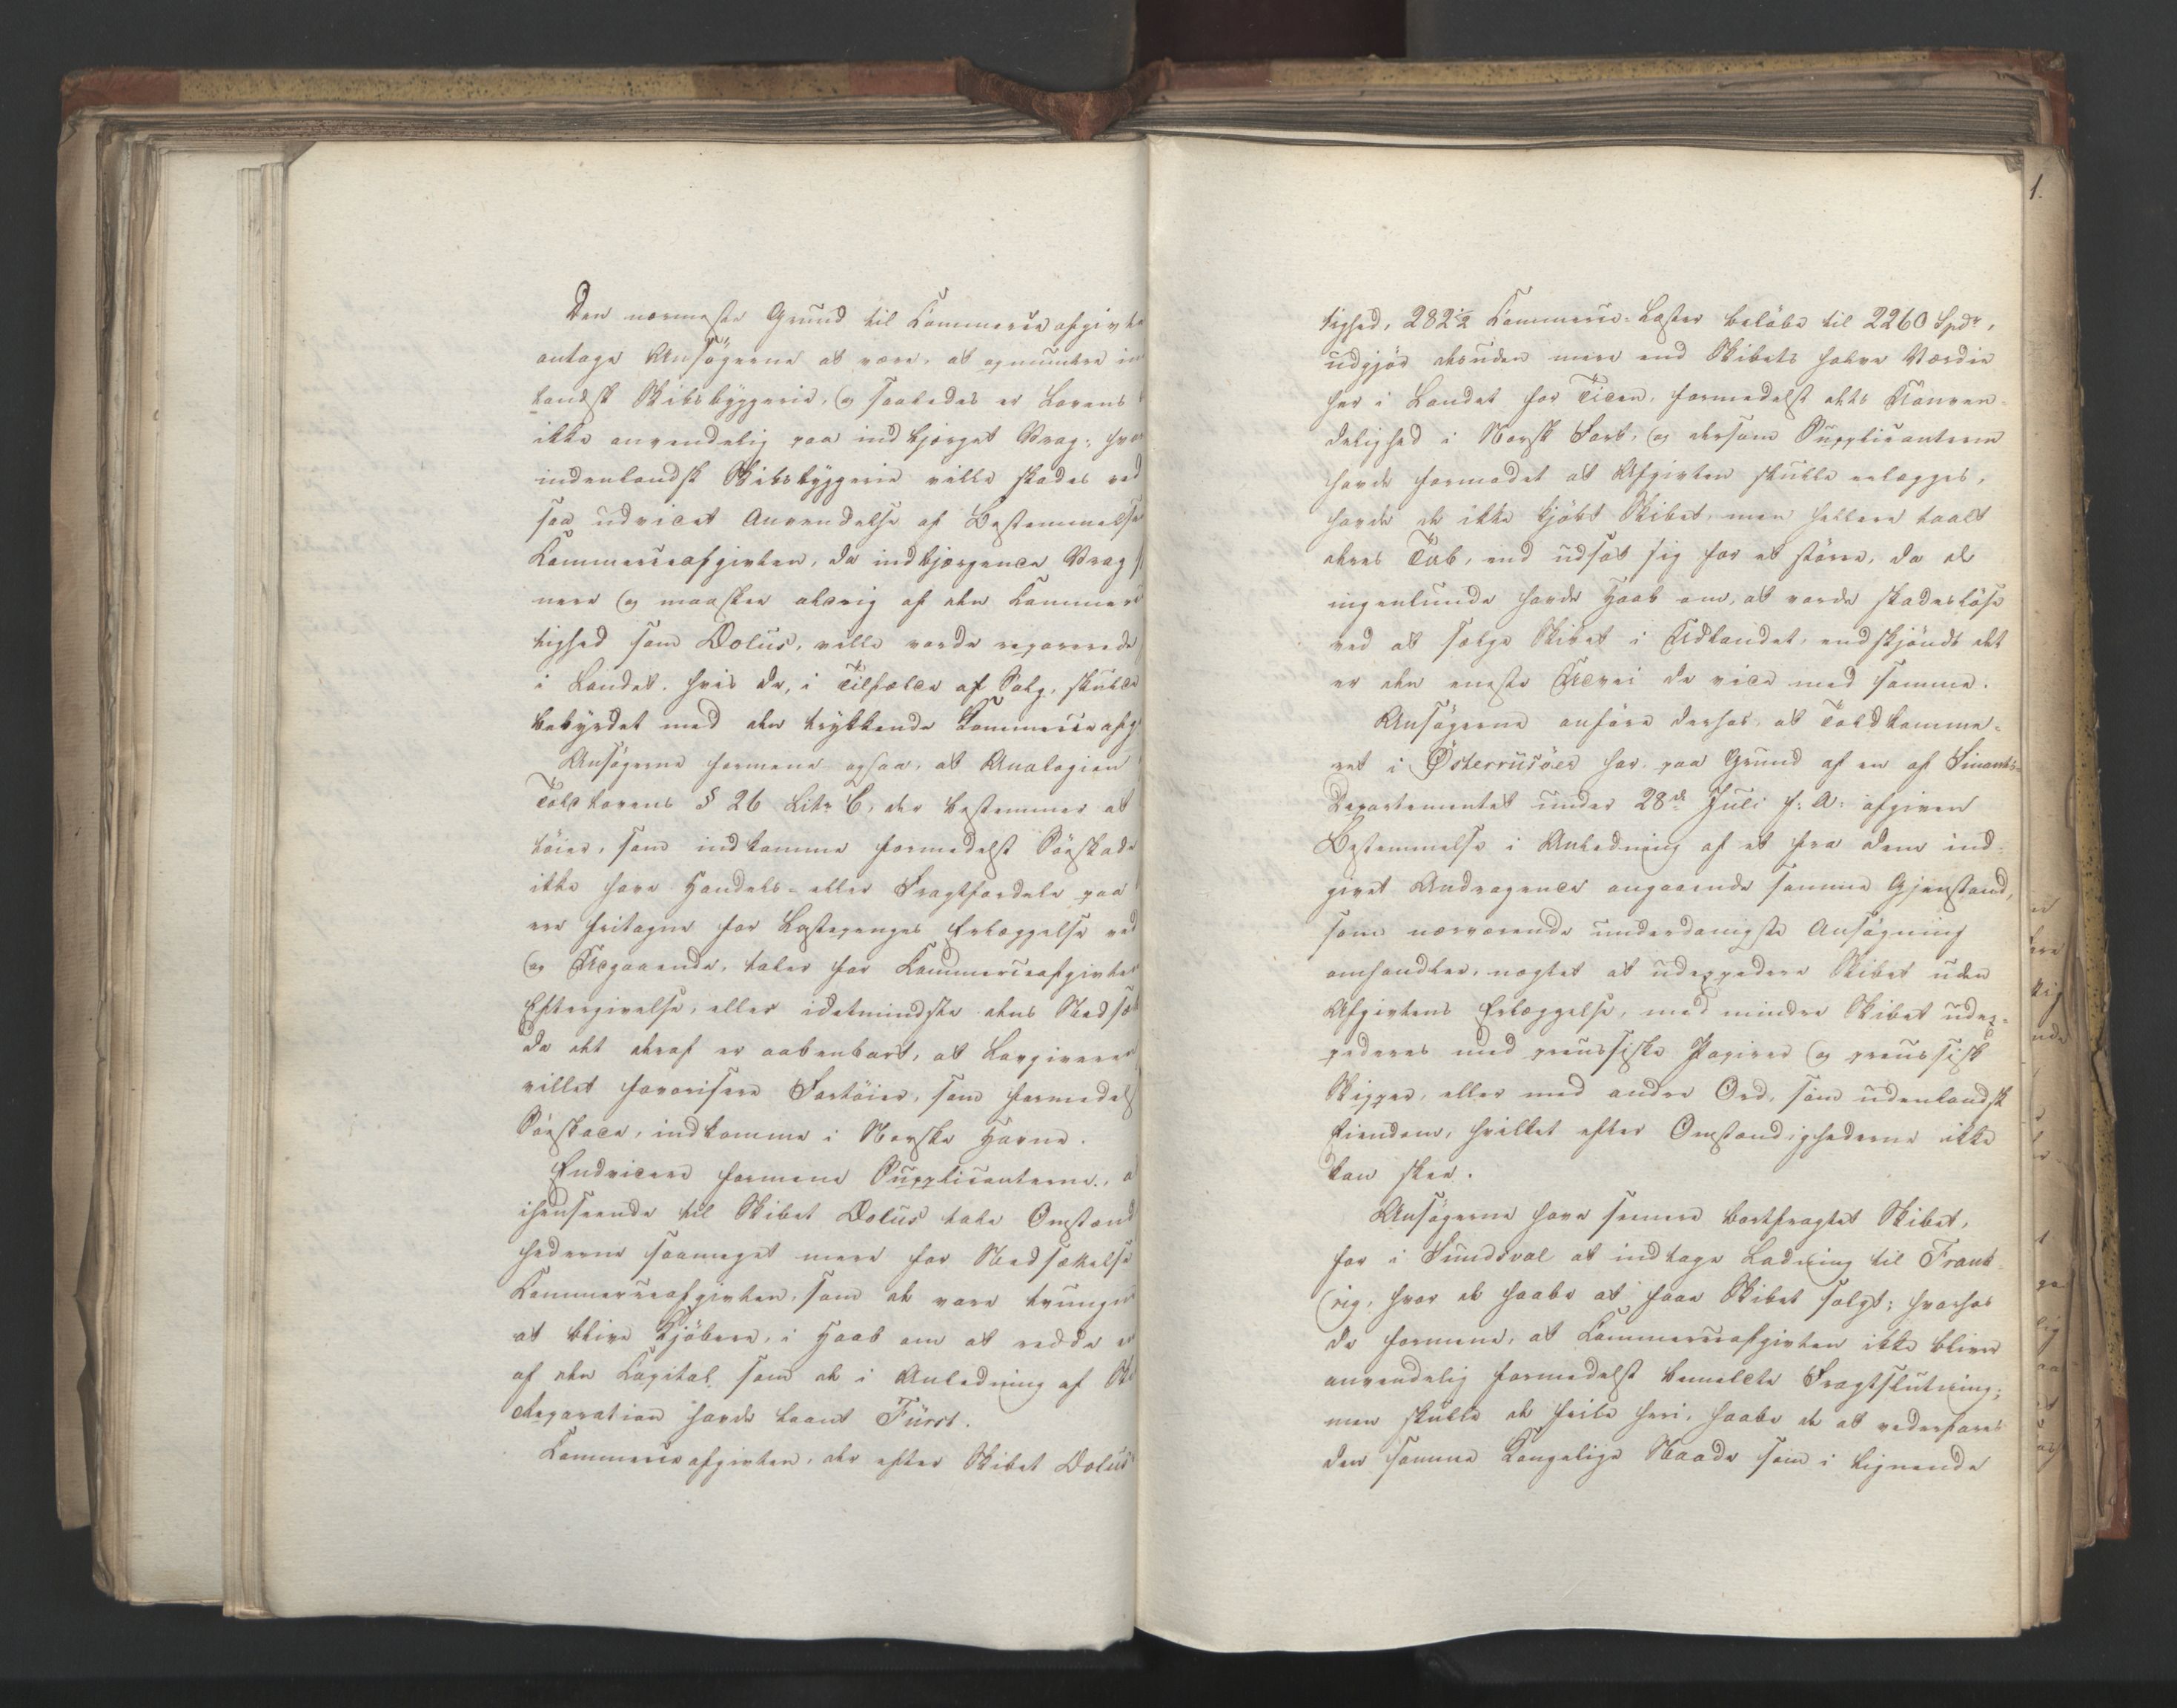 Den nærmeste Grund til Commerceafgivte
antage Ansøgerne at være, at opmuntre in
landsk Skibsbyggerie, og saaledes er Lovens
ikke anvendelig paa indbjerget Vrag; hvor
indenlandsk Skibsbyggerie ville skades ved
saa udvidet Anvendelse af Bestemmelse
Commerceafgivten, da indbjergende Vrag s
nere og maaskee aldrig af den Commerce
tighed som Dolus, ville vorde reparerede
i Landet, hvis de, i Tilfælde af Salg, skulde
bebyrdet med den trykkende Commerceafg
Ansøgerne formene ogsaa, at Analogien
Toldlovens § 26 Litr C, der bestemmer at
tøier, som indkomme formedelst Søeskade
ikke have Handels- eller Fragtfordele paa
ere fritagne for Lastepenges Erlæggelse ved
og Udgaaende, taler for Commerceafgivten
Eftergivelse, eller idetmindste dens Nedsæt
da det deraf er aabenbart, at Lovgiveren
villet favorisere Fartøier, som formedels
Søeskade, indkomme i Norske Havne.
Endvidere formene Supplicanterne, a
ihenseende til Skibet Dolus tale Omstænd
hederne saameget mere for Nedsættelse
Commerceafgivten, som de vare tvungen
at blive Kjøbere, i Haab om at redde en
af den Capital, som de i Anledning af Sk
reparation havde laant Fürst.
Commerceafgivten, der efter Skibet Dolus
1.
tighed, 282 1/2 Commerce-Læster beløbe til 2260 Spdr,
udgjør desuden mere end Skibets halve Værdie
her i Landet for Tiden, formedelst dets Uanven-
delighed i Norsk Fart, og dersom Supplicanterne
havde formodet at Afgivten skulde erlægges,
havde de ikke kjøbt Skibet, men hellere taalt
deres Tab, end udsat sig for et større, da de
ingenlunde havde Haab om, at vorde skadesløse
ved at sælge Skibet i Udlandet, endskjøndt det
er den eneste Udvei de vide med samme.
Ansøgerne anføre derhos, at Toldkamme-
ret i Østerriisøer har, paa Grund af en af Finants-
Departementet under 28de Juli f: A: afgiven
Bestemmelse i Anledning af et fra dem ind-
givet Andragende angaaende samme Gjenstand,
som nærværende underdanigste Ansøgning
omhandler, negtet at udexpedere Skibet uden
Afgivtens Erlæggelse, med mindre Skibet udex-
pederes med preussiske Papirer og preussisk
Skipper, eller med andre Ord, som udenlandsk
Eiendom, hvilket efter Omstændighederne ikke
kan skee.
Ansøgerne have senere bortfragtet Skibet,
for i Sundsval at indtage Ladning til Frank-
rig, hvor de haabe at faae Skibet solgt; hvorhos
de formene, at Commerceafgivten ikke bliver
anvendelig formedelst bemeldte Fragtslutning;
men skulde de feile heri, haabe de at vederfares
den samme Kongelige Naade som i lignende